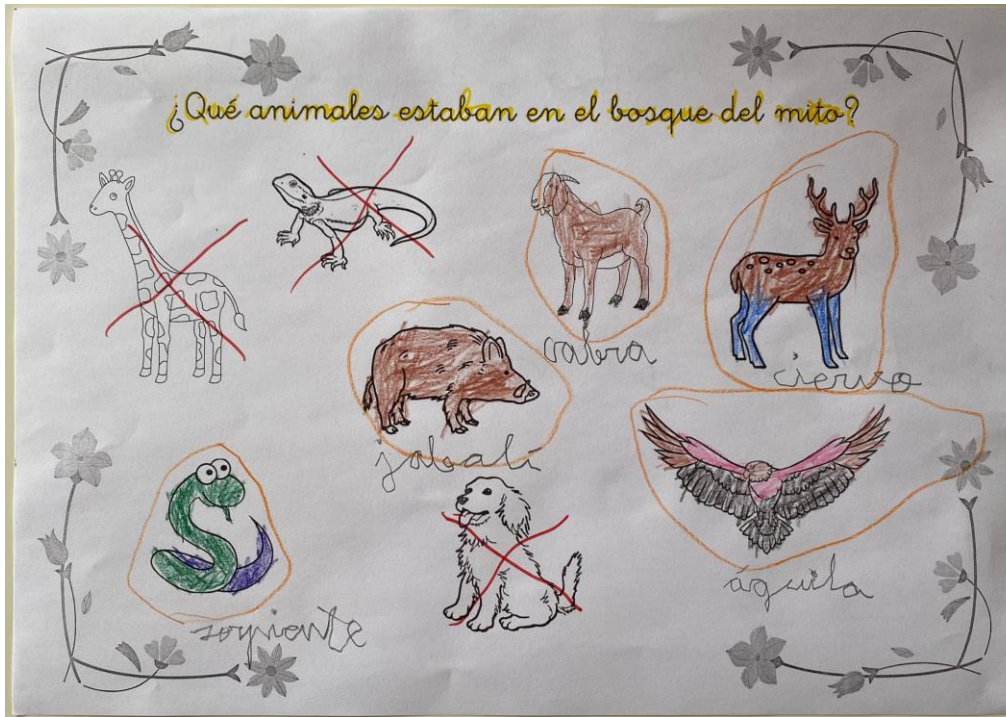 ¿Qué animales estaban en el bosque del mito?
cabra
ciervo
jabalí
águila
serpiente